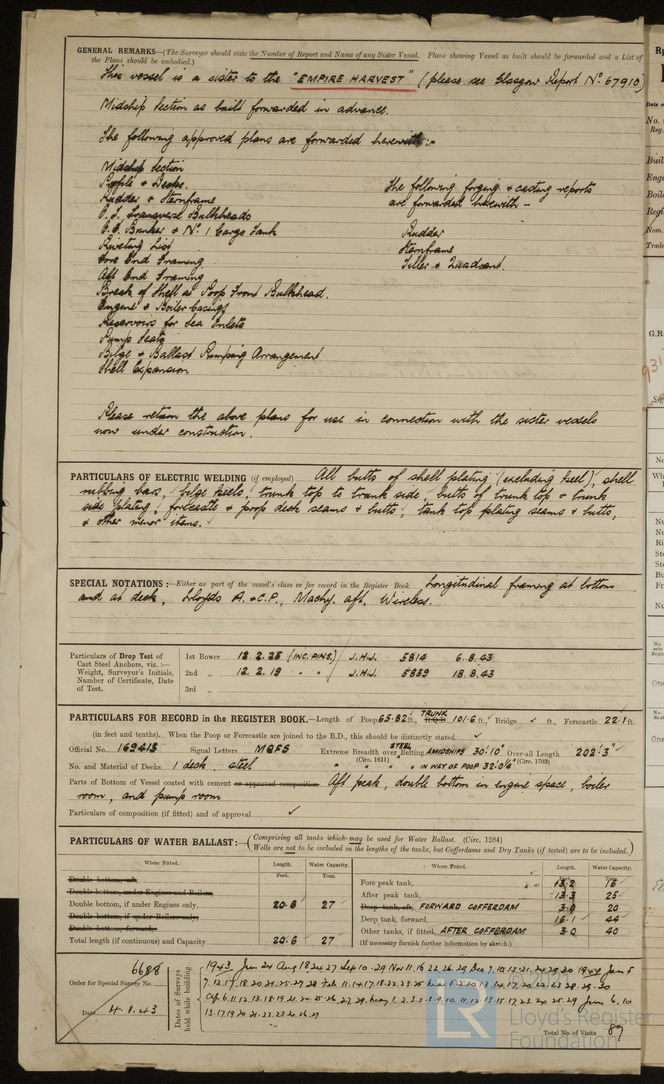 GENERAL REMARKS—(The Surveyor should state the Number of Report and Name of any Sister Vessel. Plans showing Vessel as built should be forwarded and a List of
the Plans should be embodied.)
This vessel is a sister to the "EMPIRE HARVEST" (please see Glasgow Report No. 67910)
Midship Section as built forwarded in advance.
The following approved plans are forwarded herewith:-
Midship Section
Profile & Decks.
Rudder & Sternframe
O.T. Transverse Bulkheads
O.F. Bunker & No. 1 Cargo Tank
Riveting List
Fore End Framing
Aft End Framing
Break of Shell at Poop Front Bulkhead.
Engine & Boiler Casings
Reservoirs for Sea Inlets
Pump Seats
Bilge & Ballast Pumping Arrangement
Shell Expansion
The following forging & casting reports
are forwarded herewith -
Rudder
Sternframe
Tiller & Quadrant.
Please return the above plans for use in connection with the sister vessels
now under construction.
PARTICULARS OF ELECTRIC WELDING (if employed) All butts of shell plating (excluding keel), shell
rubbing bars, bilge keels, trunk top to trunk side, butts of trunk top & trunk
side plating, forecastle & poop deck seams & butts, tank top plating seams & butts,
& other minor items.
SPECIAL NOTATIONS:—Either as part of the vessel's class or for record in the Register Book Longitudinal framing at bottom
and at deck, Lloyds A. & C.P., Machy. aft, Wireless.
Particulars of Drop Test of
Cast Steel Anchors, viz.:—
Weight, Surveyor's Initials,
Number of Certificate, Date
of Test.
1st Bower 12.2.25 (INC. PINS) J.H.J. 5814 6.8.43
2nd „ 12.2.19 " " J.H.J. 5839 18.8.43
3rd „
PARTICULARS FOR RECORD in the REGISTER BOOK.—Length of Poop 65.82 ft., TRUNK 101.6 ft., Bridge ✓ ft., Forecastle 22.1 ft.
(in feet and tenths). When the Poop or Forecastle are joined to the B.D., this should be distinctly stated ✓
Official No. 169413 Signal Letters MQFS Extreme Breadth over STEEL Belting AMIDSHIPS 30'.10" Over-all Length 202'.3"
(Circ. 1611) (Circ. 1703)
No. and Material of Decks 1 deck, steel " " " IN WAY OF POOP 32.0¼"
Parts of Bottom of Vessel coated with cement or approved composition Aft peak, double bottom in engine space, boiler
room, and pump room
Particulars of composition (if fitted) and of approval ✓
PARTICULARS OF WATER BALLAST:— (Comprising all tanks which may be used for Water Ballast. (Circ. 1284)
Wells are not to be included in the lengths of the tanks, but Cofferdams and Dry Tanks (if tested) are to be included.)
Where Fitted. Length. Water Capacity.
Feet. Tons.
Double bottom, aft,
Double bottom, under Engines and Boilers,
Double bottom, if under Engines only, 20.6 27
Double bottom, if under Boilers only,
Double bottom, forward,
Total length (if continuous) and Capacity 20.6 27
Where Fitted. Length. Water Capacity.
Fore peak tank, 13.2 16
After peak tank, 13.3 25
Deep tank, aft, FORWARD COFFERDAM 3.0 20
Deep tank, forward, 16.1 44
Other tanks, if fitted, AFTER COFFERDAM 3.0 40
(If necessary furnish further information by sketch.)
Order for Special Survey No. 6688
Date 4.8.43
Dates of Surveys
held while building
1943 Jun 24 Aug 18 24 27 Sep 10 29 Nov 11 16 22 26 29 Dec 7 10 13 21 24 29 30 1944 Jan 5
Total No. of Visits 87
© 2021
LR
Lloyd's Register
Foundation